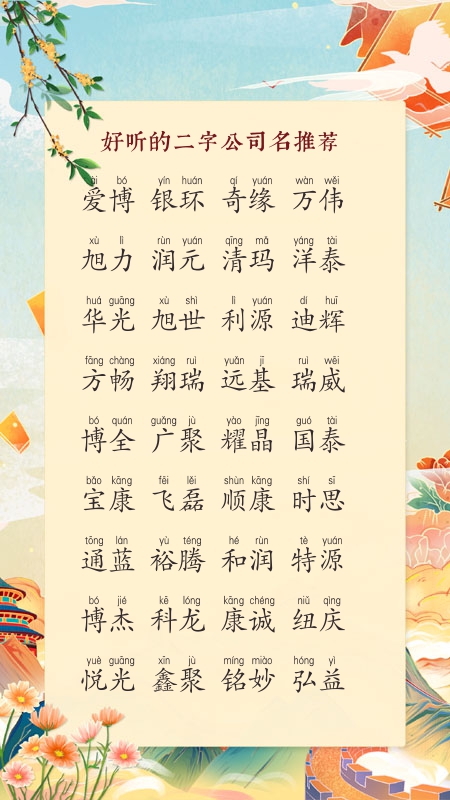 好听的二字公司名推荐
ài bó yín huán qí yuán wàn wěi
爱博 银环 奇缘 万伟
xù lì rùn yuán qīng mǎ yáng tài
旭力 润元 清玛 洋泰
huá guāng xù shì lì yuán dí huī
华光 旭世 利源 迪辉
fāng chàng xiáng ruì yuǎn jī ruì wēi
方畅 翔瑞 远基 瑞威
bó quán guǎng jù yào jīng guó tài
博全 广聚 耀晶 国泰
bǎo kāng fēi lěi shùn kāng shí sī
宝康 飞磊 顺康 时思
tōng lán yù téng hé rùn tè yuán
通蓝 裕腾 和润 特源
bó jié kē lóng kāng chéng niǔ qìng
博杰 科龙 康诚 纽庆
yuè guāng xīn jù míng miào hóng yì
悦光 鑫聚 铭妙 弘益